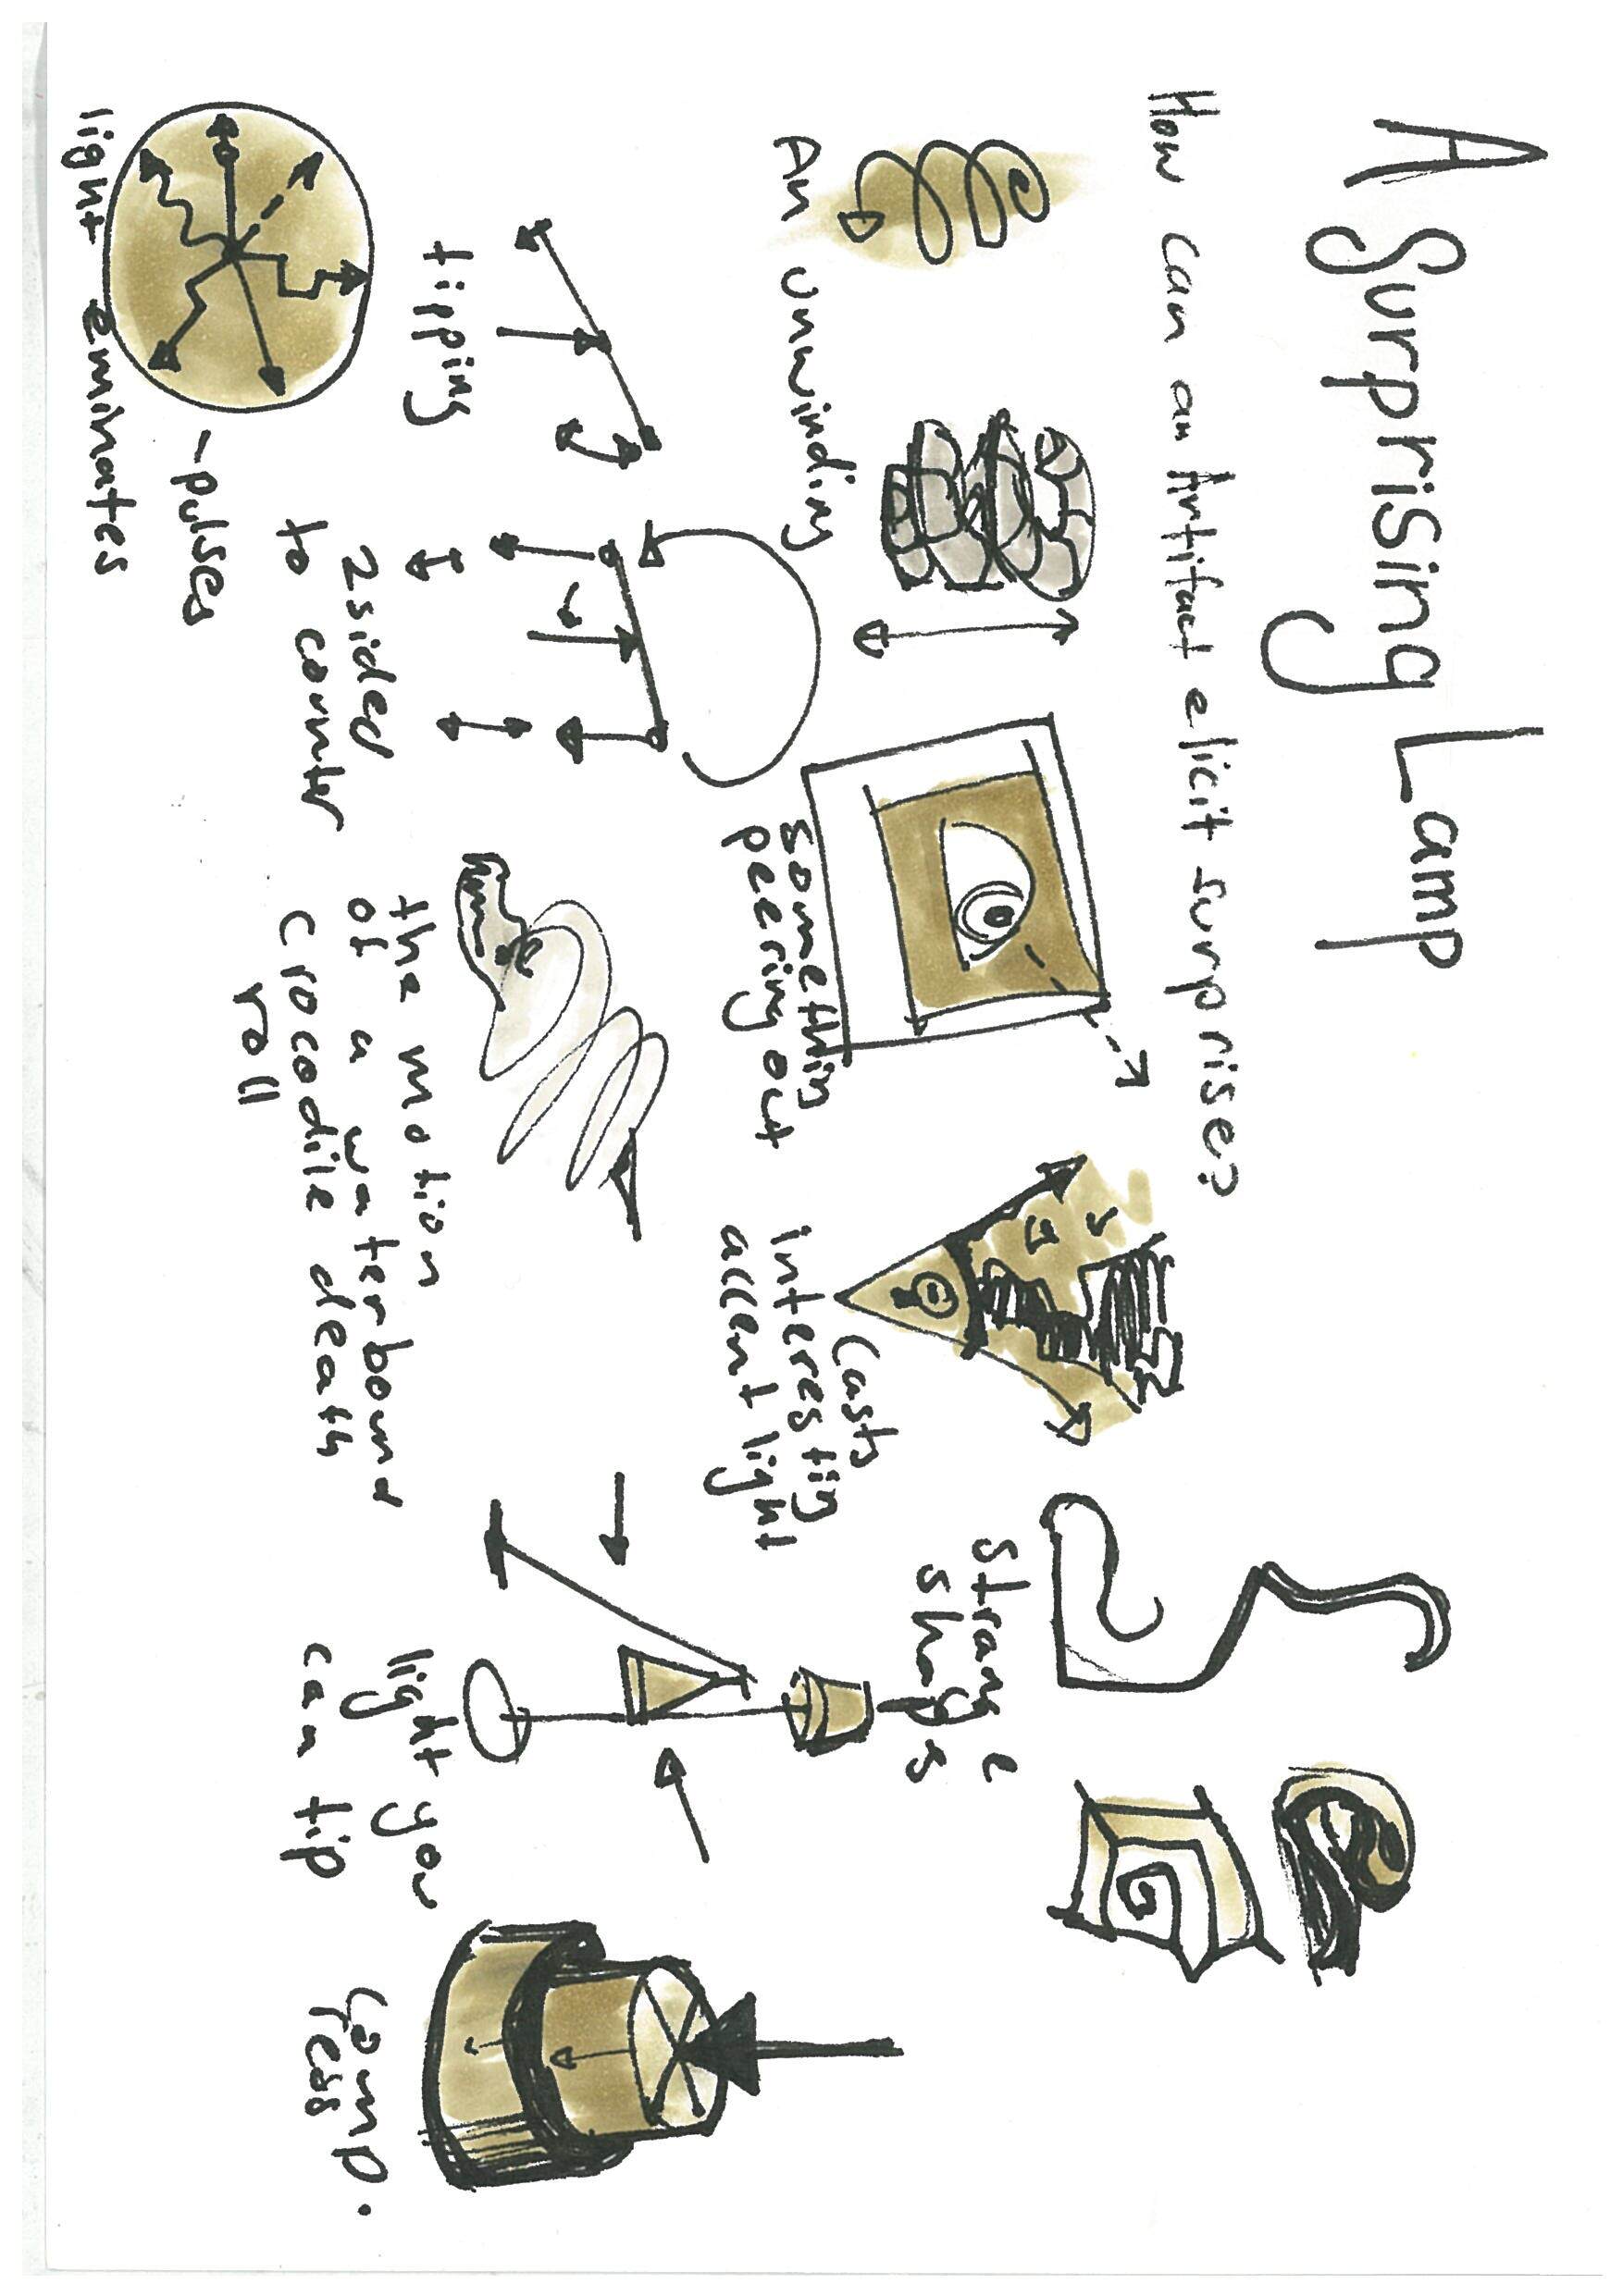 A Surprising Lamp
How can an Artifact elicit surprise?
An unwinding
somethin
peering out
Casts
interesting
accent light
strange
shapes
tipping
2sided
to counter
the motion
of a waterbound
crocodile death
roll
light you
can tip
comp.
ress
-pulses
light eminates